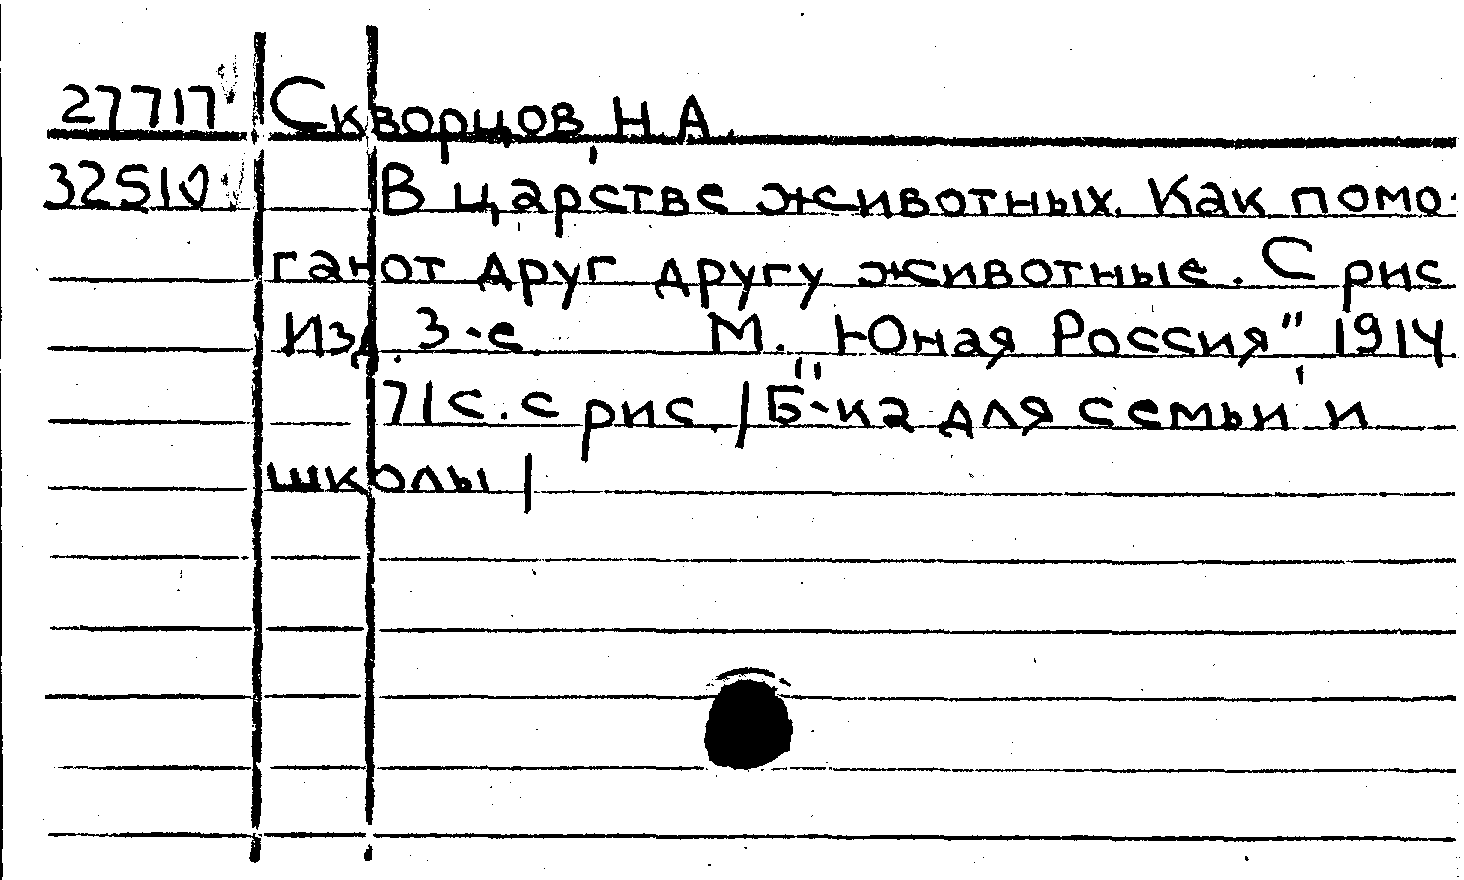 27717 Скворцов, Н.А.
32510 В царстве животных. Как помо-
гают друг другу животные. С рис
Изд. 3-е М. "Юная Россия" 1914
71с. с рис. /Б-ка для семьи и
школы/